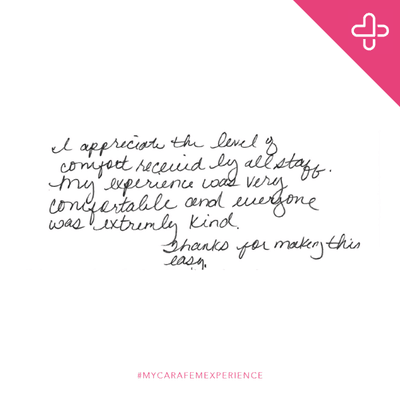 I appreciate the level of
comfort received by all staff.
My experience was very
comfortable and everyone
was extremly kind.
Thanks for making this
easy.
#MYCARAFEMEXPERIENCE